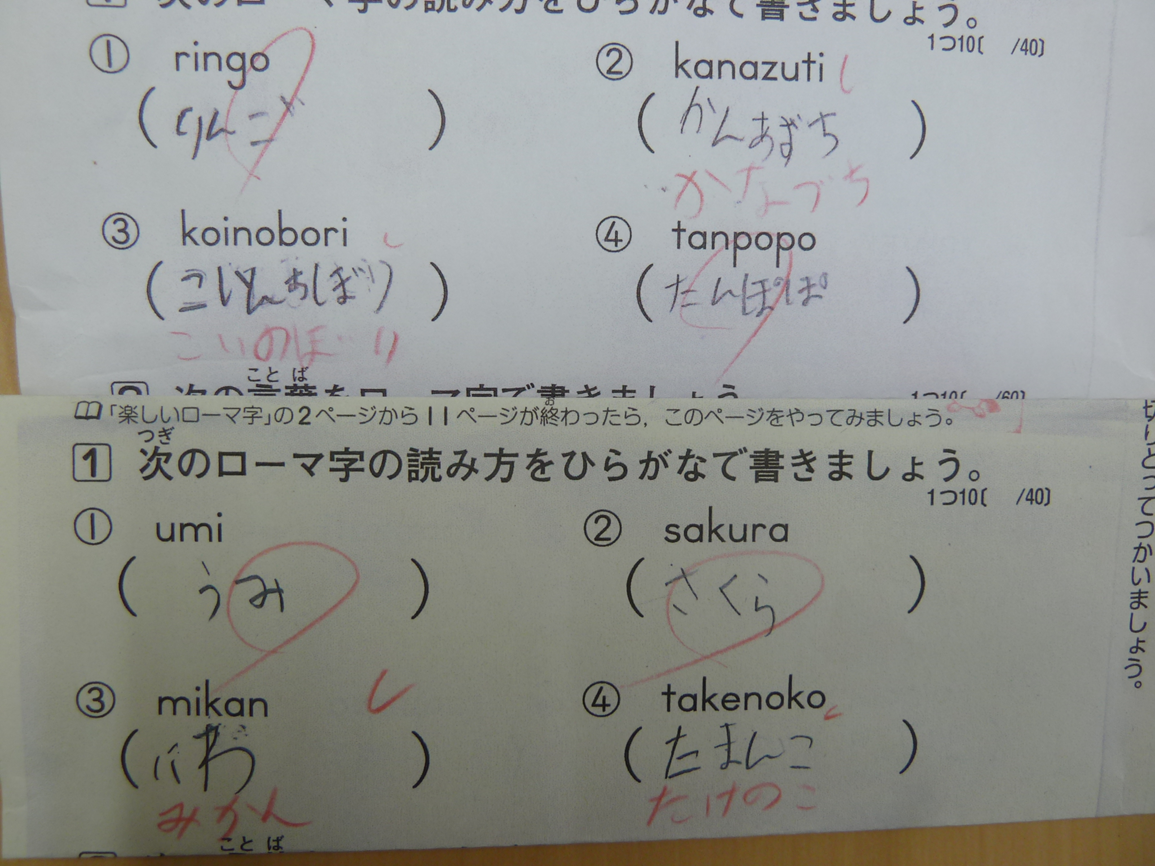 次のローマ字の読み方をひらがなで書きましょう。
1つ10〔 /40〕
① ringo ② kanazuti
(りんご) (かんあずち)
かなづち
③ koinobori ④ tanpopo
(こいんおぼり) (たんぽぽ)
こいのぼり
ことば
2 次の言葉をローマ字で書きましょう
1つ10〔 /60〕
「楽しいローマ字」の2ページから11ページが終わったら，このページをやってみましょう。
お
つぎ
1 次のローマ字の読み方をひらがなで書きましょう。
1つ10〔 /40〕
① umi ② sakura
(うみ) (さくら)
③ mikan ④ takenoko
(たまんこ)
みかん たけのこ
ことば
切りとってつかいましょう。